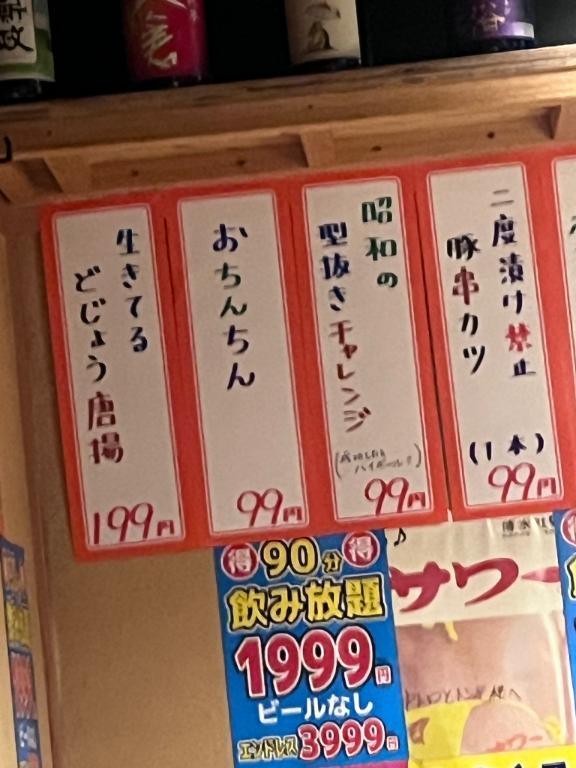 二度漬け禁止
豚串カツ
(1本)
99円
昭和の
型抜きチャレンジ
(成功したら
ハイボール!)
99円
おちんちん
99円
生きてる
どじょう唐揚
199円
得 90分 得
飲み放題
1999円
ビールなし
エンドレス3999円
サワー